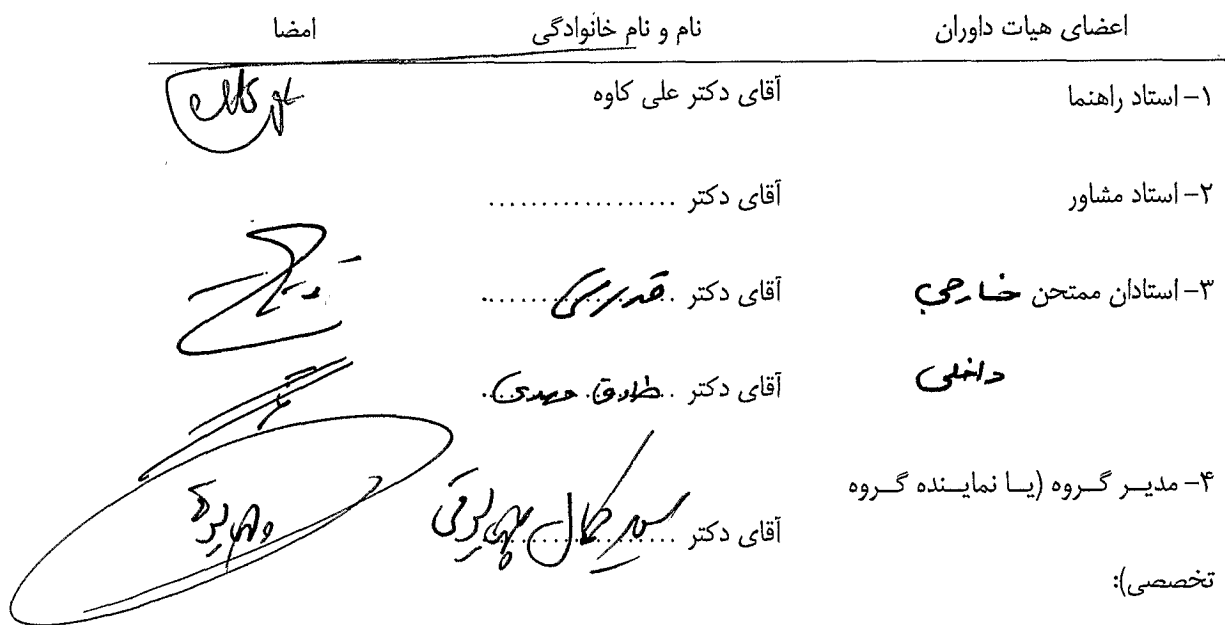 اعضای هیات داوران نام و نام خانوادگی امضا
۱- استاد راهنما آقای دکتر علی کاوه
۲- استاد مشاور آقای دکتر ..................
۳- استادان ممتحن خارجی آقای دکتر قدرتی
داخلی آقای دکتر مهدی
۴- مدیـر گـروه (یـا نماینـده گـروه
آقای دکتر سید کمال
تخصصی):